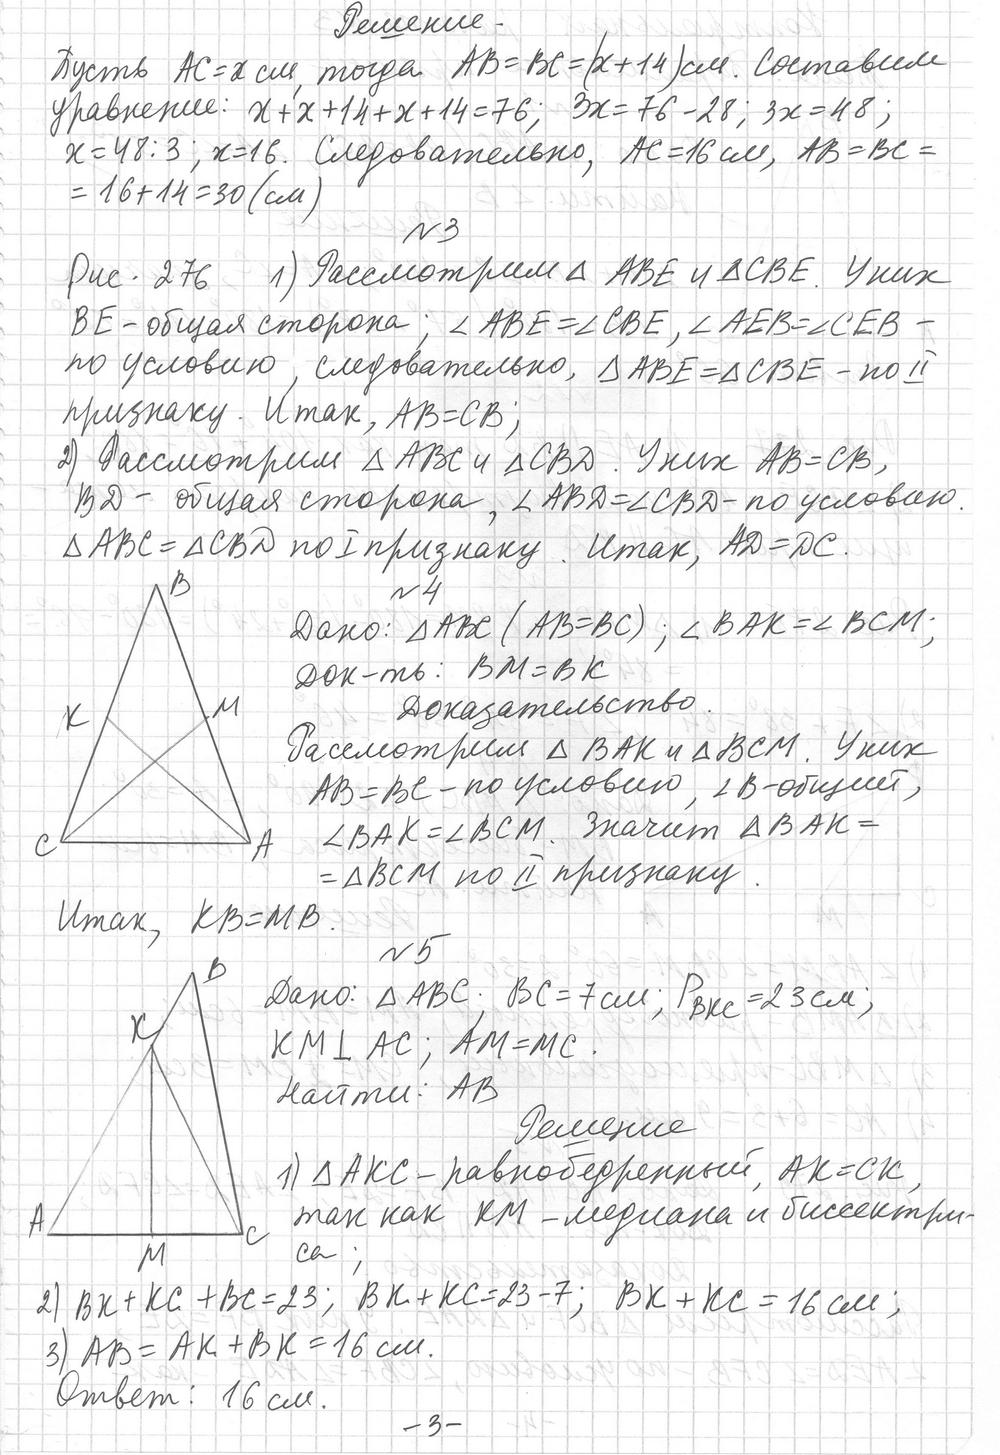 Решение.
Пусть AC=x см, тогда AB=BC=(x+14) см. Составим
уравнение: x+x+14+x+14=76; 3x=76-28; 3x=48;
x=48:3; x=16. Следовательно, AC=16 см, AB=BC=
=16+14=30(см)
№3
Рис. 276 1) Рассмотрим △ ABE и △CBE. У них
BE - общая сторона; ∠ABE=∠CBE, ∠AEB=∠CEB -
по условию, следовательно, △ABE=△CBE - по II
признаку. Итак, AB=CB;
2) Рассмотрим △ABC и △CBD. У них AB=CB,
BD - общая сторона, ∠ABD=∠CBD - по условию.
△ABC=△CBD по I признаку. Итак, AD=DC.
B
№4
Дано: △ABC (AB=BC); ∠BAK=∠BCM;
Док-ть: BM=BK
K M
Доказательство.
Рассмотрим △ BAK и △BCM. У них
AB=BC - по условию, ∠B-общий,
C A
∠BAK=∠BCM. Значит △BAK=
=△BCM по II признаку.
Итак, KB=MB.
№5
B
Дано: △ABC. BC=7см; P BKC=23см;
K
KM⊥AC; AM=MC.
Найти: AB
Решение
1) △AKC - равнобедренный, AK=CK,
A C
так как KM - медиана и биссектри-
M
са;
2) BK+KC+BC=23; BK+KC=23-7; BK+KC=16см;
3) AB=AK+BK=16 см.
Ответ: 16см.
-3-